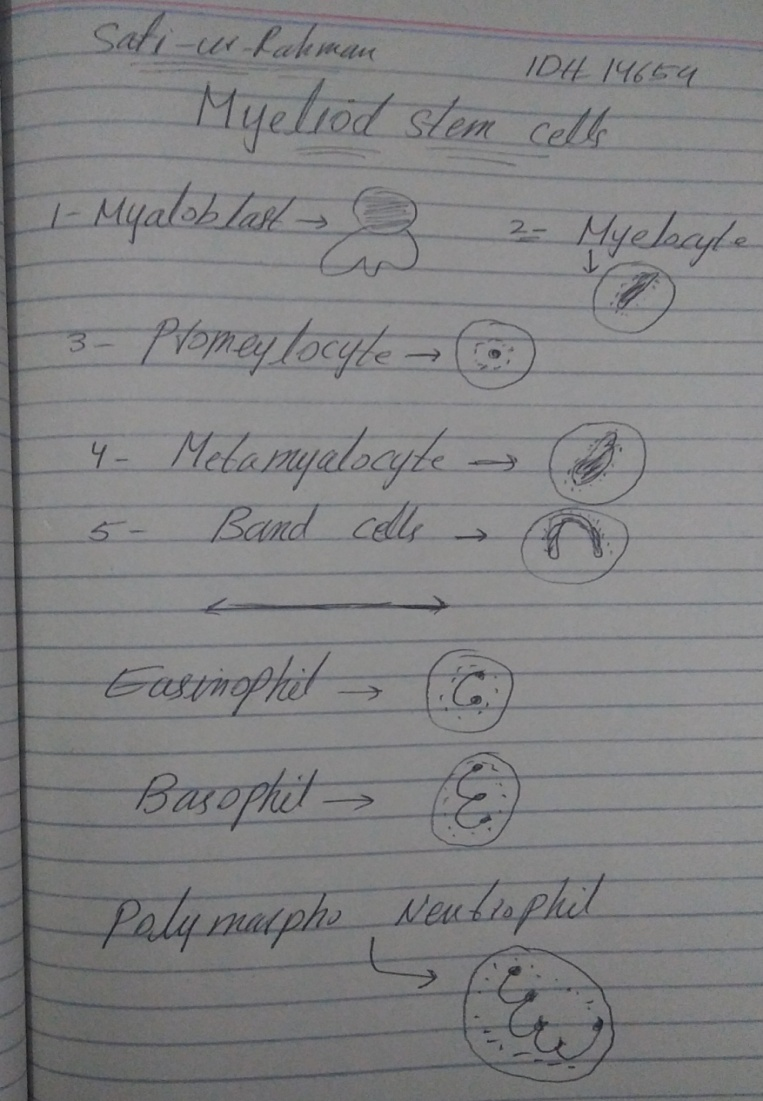 Safi-ur-Rahman
ID# 14654
Myeliod stem cells
1- Myaloblast →
2= Myelocyte
↓
3- Promeylocyte →
4- Metamyalocyte →
5- Band cells →
Easinophil →
Basophil →
Polymorpho Neutrophil